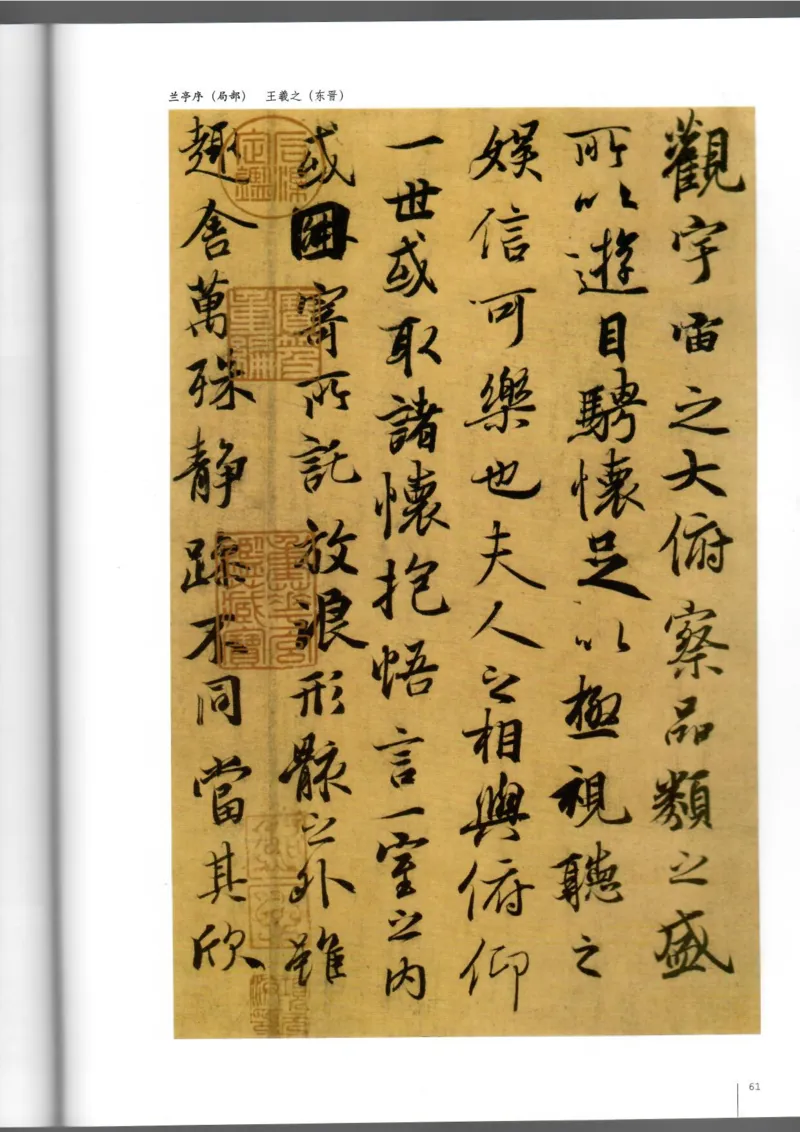 兰亭序（局部）　王羲之（东晋）
觀宇宙之大俯察品類之盛
所以遊目騁懷足以極視聽之
娛信可樂也夫人之相與俯仰
一世或取諸懷抱悟言一室之內
或因寄所託放浪形骸之外雖
趣舍萬殊静躁不同當其欣
61